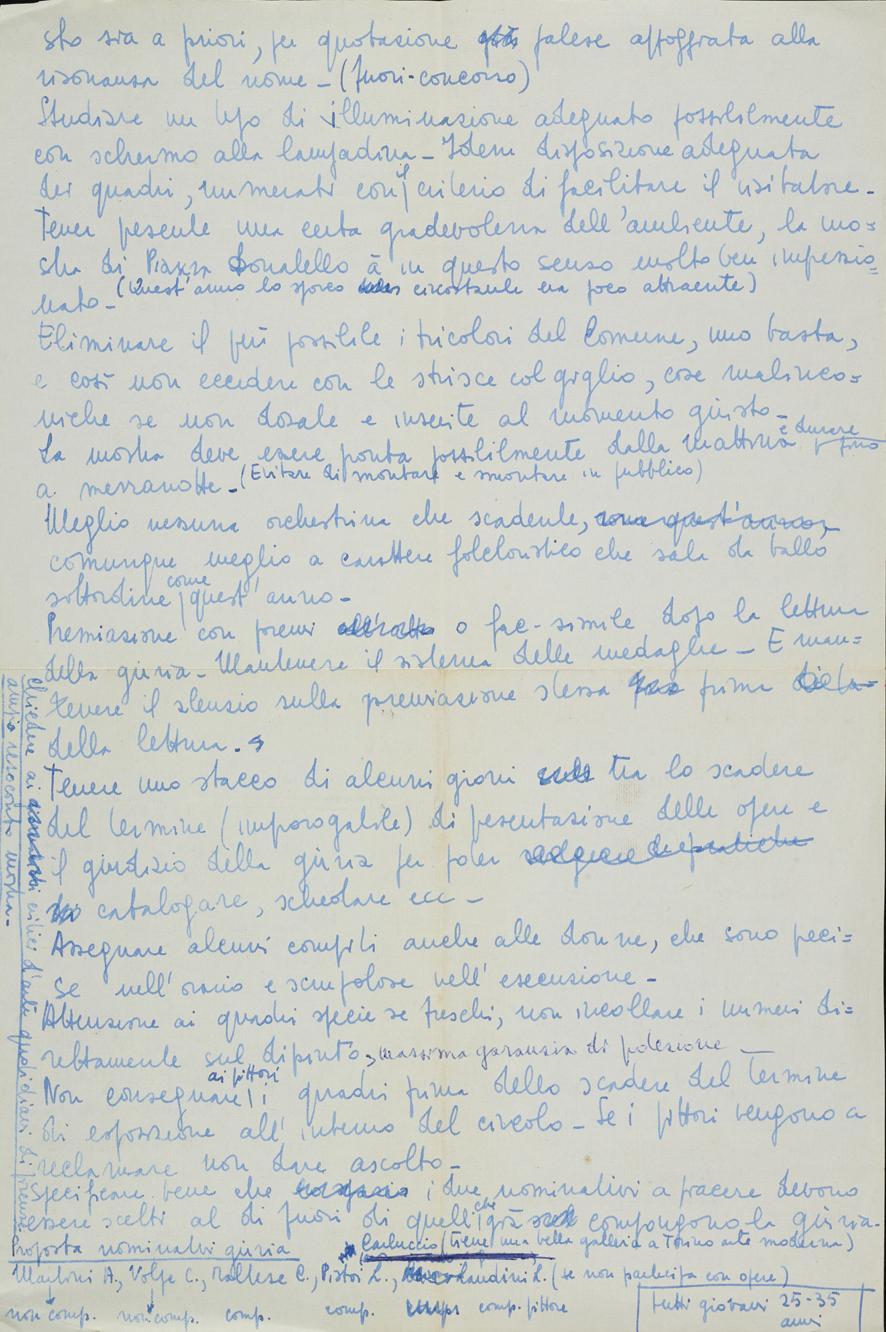 sto sia a priori, per quotazione palese appoggiata alla
risonanza del nome - (fuori-concorso)
Studiare un tipo di illuminazione adeguato possibilmente
con schermo alla lampadina - Idem disposizione adeguata
dei quadri, numerati con il criterio di facilitare il visitatore -
Tener pesente una certa gradevolezza dell'ambiente, la mo=
stra di Piazza Donatello à in questo senso molto ben impessio=
nato - (Quest'anno lo sporco circostante era poco attraente)
Eliminare il più possibile i tricolori del Comune, uno basta,
e così non eccedere con le strisce col giglio, cose malinco=
niche se non dosate e inserite al momento giusto -
La mostra deve essere ponta possibilmente dalla mattina e durare fino
a mezzanotte - (Evitare di montare e smontare in pubblico)
Meglio nessuna orchestrina che scadente, come quest'anno,
comunque meglio a carattere folcloristico che sala da ballo
sottordine come quest'anno -
Premiazione con premi o fac-simile dopo la lettura
della giuria - Mantenere il sistema delle medaglie - E man=
tenere il silenzio sulla premiazione stessa prima
della lettura.
Tenere uno stacco di alcuni giorni tra lo scadere
del termine (improrogabile) di pesentazione delle opere e
il giudizio della giuria per poter
catalogare, schedare ecc -
Assegnare alcuni compiti anche alle donne, che sono peci=
se nell'orario e scrupolose nell'esecuzione -
Attenzione ai quadri specie se freschi, non incollare i numeri di=
rettamente sul dipinto, massima garanzia di potezione -
Non consegnare ai pittori i quadri prima dello scadere del Termine
di esposizione all'interno del circolo - Se i pittori vengono a
reclamare non dare ascolto -
Specificare bene che i due nominativi a piacere devono
essere scelti al di fuori di quelli che già compongono la giuria -
Proposta nominativi giuria Carluccio (tiene una bella galleria a Torino arte moderna)
A., Volpe C., C., Pistoi L., Landini L. (se non partecipa con opere)
non comp. non comp. comp. comp. comp. pittore
tutti giovani 25-35
anni
Chiedere ai critici d'arte quotidiani di Firenze
ampio resoconto mostra -